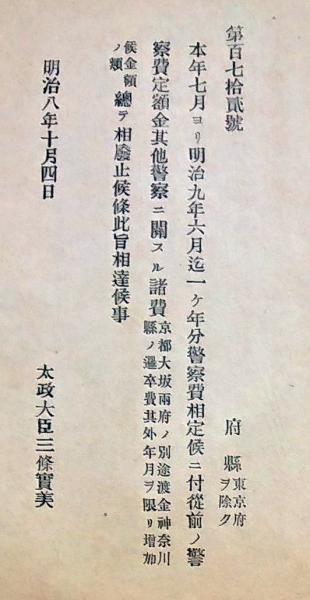 第百七拾貳號
府縣 東京府ヲ除ク
本年七月ヨリ明治九年六月迄一ケ年分警察費相定候ニ付從前ノ警
察費定額金其他警察ニ關スル諸費 京都大坂兩府ノ別途渡金神奈川縣ノ邏卒費其外年月ヲ限リ增加
候金額ノ類 總テ相廢止候條此旨相達候事
明治八年十月四日
太政大臣三條實美